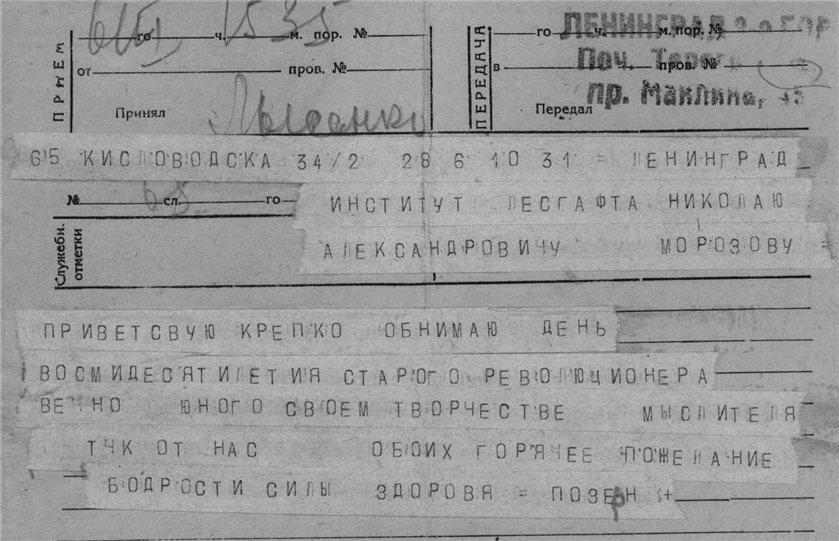 ПРИЕМ
го ч. 15 35 м. пор. №
от пров. №
Принял
Лысенко
ПЕРЕДАЧА
го ч. м. пор. №
в пров. №
Передал
ЛЕНИНГРАД
Поч.
пр. Маклина,
615 КИСЛОВОДСКА 34/2 28 6 10 31 = ЛЕНИНГРАД
№ сл. го
ИНСТИТУТ ЛЕСГАФТА НИКОЛАЮ
Служебн. отметки
АЛЕКСАНДРОВИЧУ МОРОЗОВУ =
ПРИВЕТСВУЮ КРЕПКО ОБНИМАЮ ДЕНЬ
ВОСМИДЕСЯТИЛЕТИЯ СТАРОГО РЕВОЛЮЦИОНЕРА
ВЕЧНО ЮНОГО СВОЕМ ТВОРЧЕСТВЕ МЫСЛИТЕЛЯ
ТЧК ОТ НАС ОБОИХ ГОРЯЧЕЕ ПОЖЕЛАНИЕ
БОДРОСТИ СИЛЫ ЗДОРОВЯ = ПОЗЕРН +